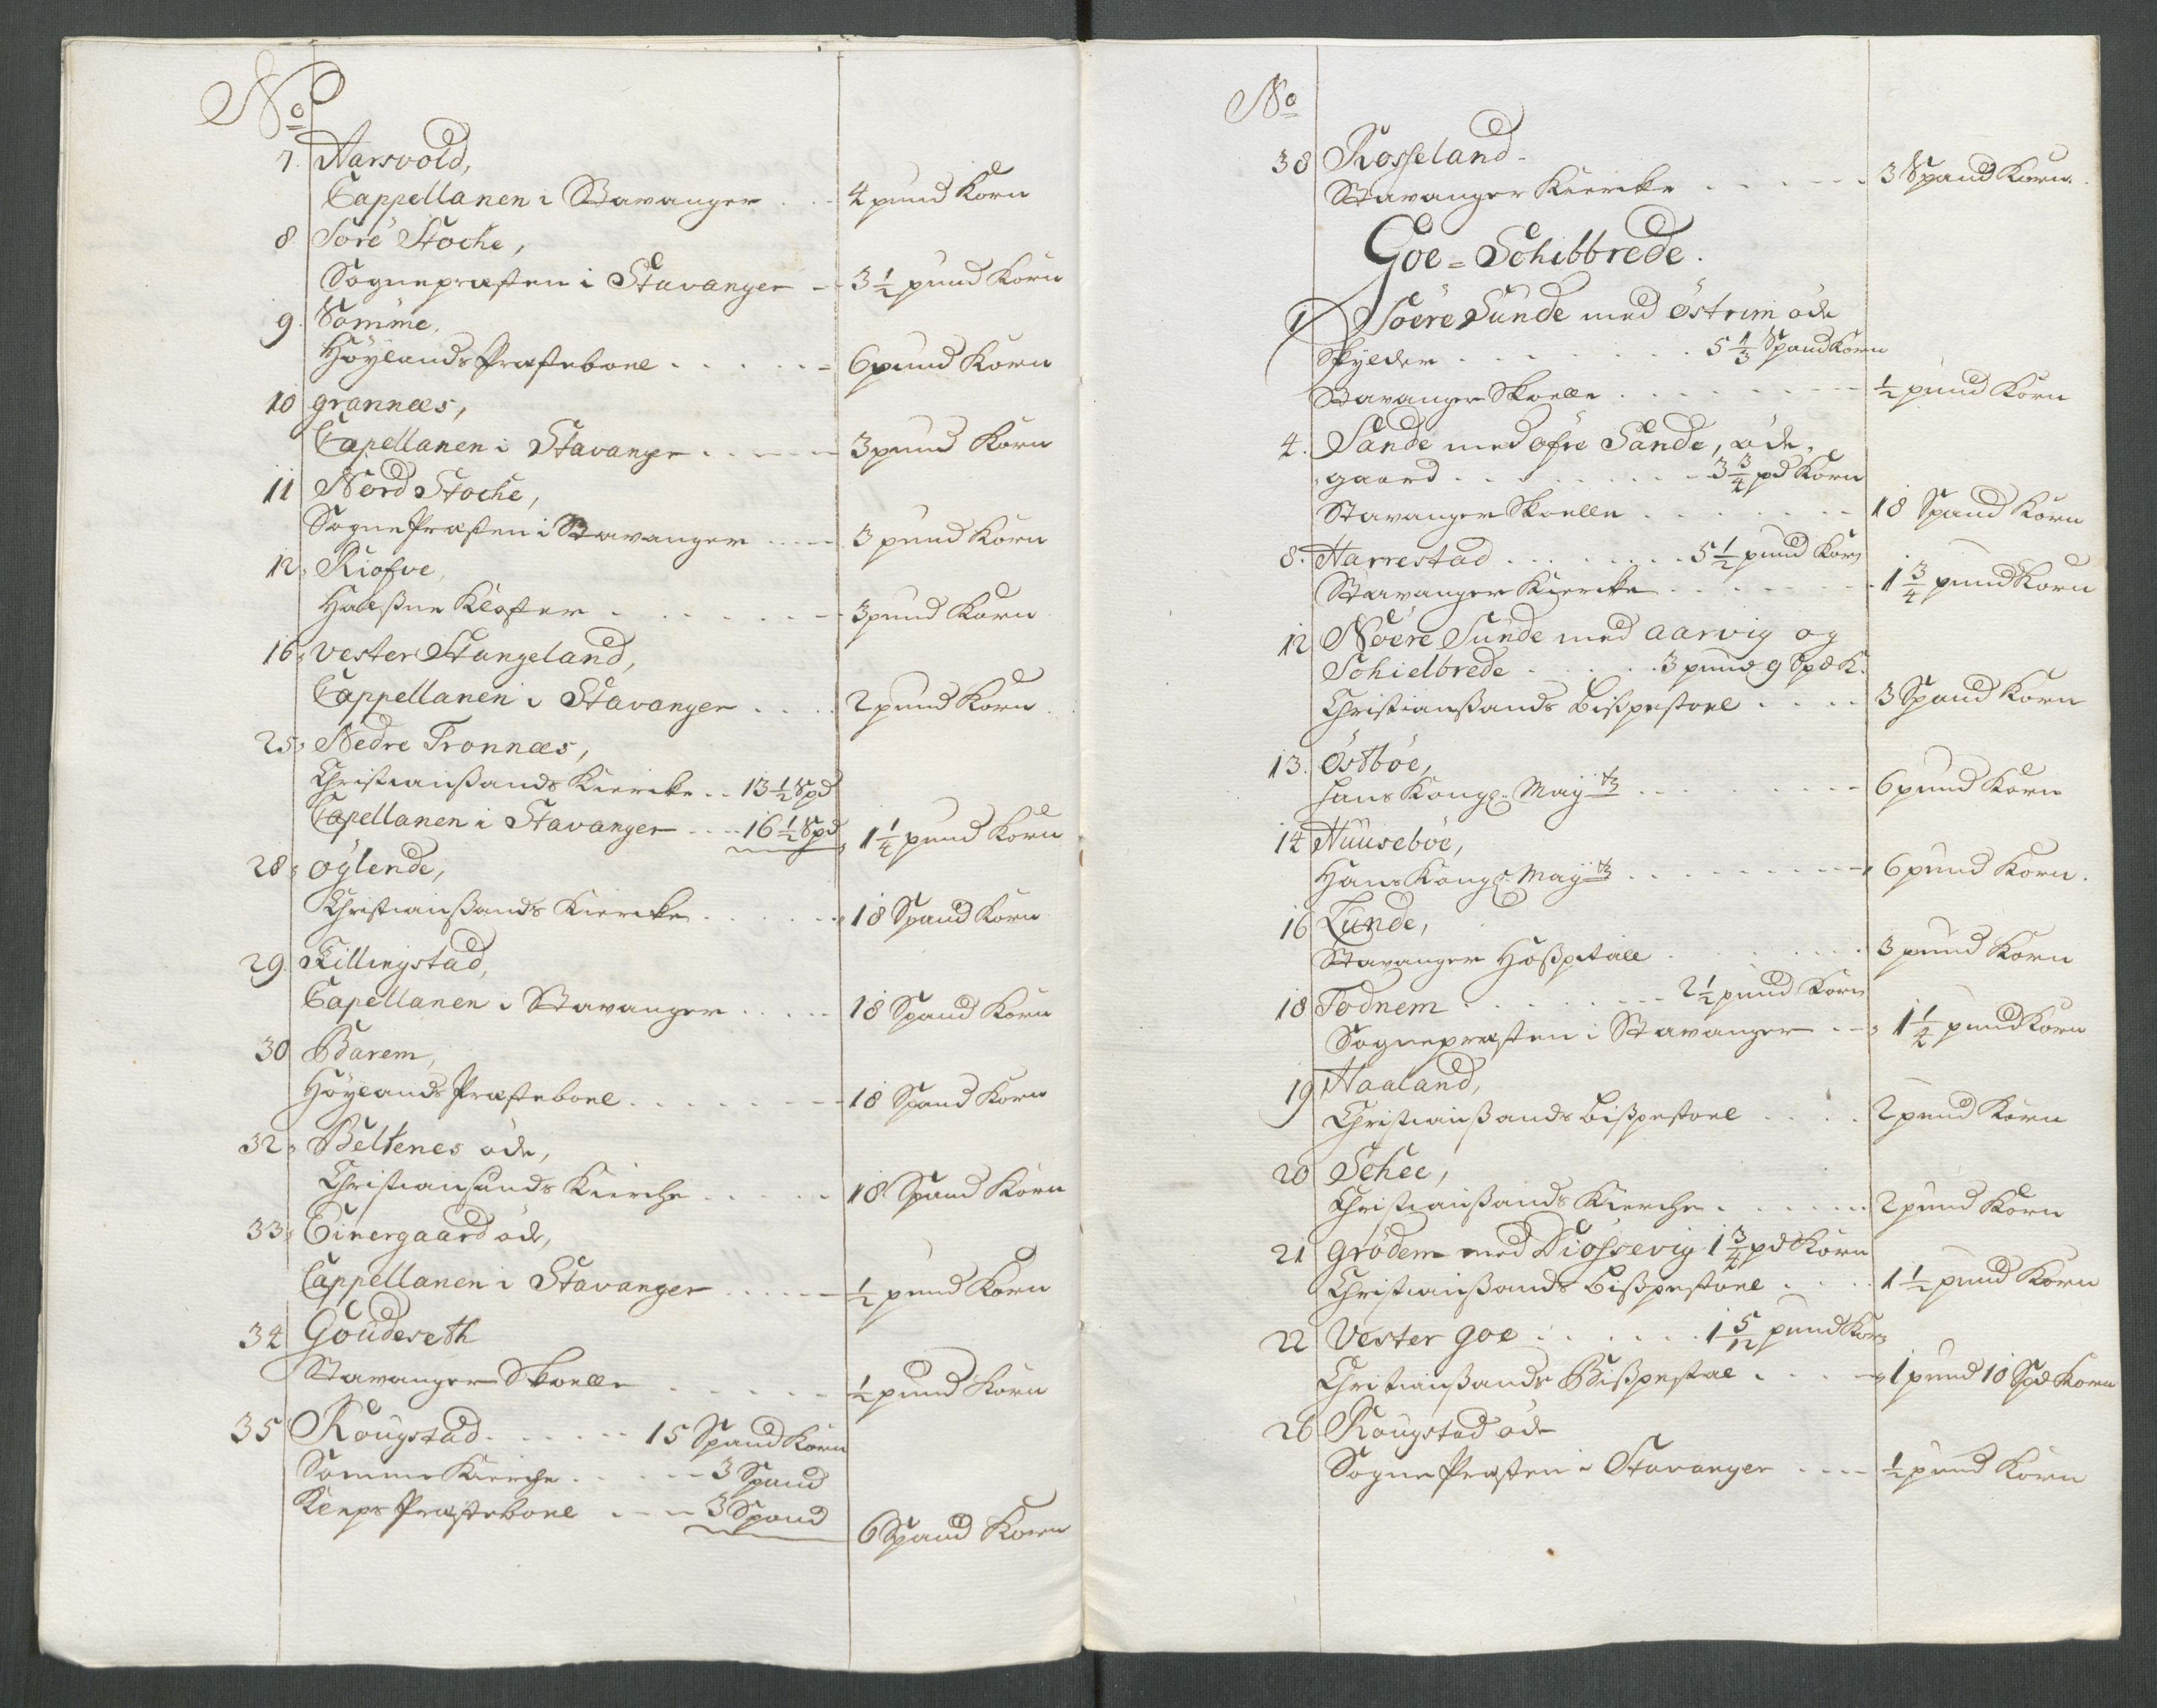 No
7. Aarsvold,
Cappellanen i Stavanger . . - 4 pund Korn
8 Sore Stocke,
Sognepræsten i Stavanger - - 3 1/2 pund Korn
9. Somme,
Höylands Præsteboel . . . . . - 6 pund Korn
10 grannæs,
Capellanen i Stavanger . . - - - 3 pund Korn
11 Nord Stocke,
Sogne Præsten i Stavanger . . - - 3 pund Korn
12, Riofve,
Halssne Kloster . . . . . - 3 pund Korn
16, vester Stangeland,
Cappellanen i Stavanger . . . . 2 pund Korn
25, Nedre Tronnæs,
Christianssands Kiercke . . 13 1/2 Spd
Capellanen i Stavanger - . . . 16 1/2 Spd, 1 1/4 pund Korn
28, öylende,
Christianssands Kiercke . . . . . . 18 Spand Korn
29. Tillingstad,
Capellanen i Stavanger . . . . . 18 Spand Korn
30 Barem,
Höylands Præsteboel . . . . . . - - 18 Spand Korn
32, Beltenes öde,
Christiansands Kierche . . . . . 18 Spand Korn
33, Einergaard öde,
Cappellanen i Stavanger . . . . - - 1/2 pund Korn
34 Goudeseth
Stavanger Skoelle . . . . . . 1/2 pund Korn
35 Rougstad . . . . . . 15 Spand Korn
Somme Kierche . . . . - - 3 Spand
Kleps Præsteboel . - - - 3 Spand 6 Spand Korn
No
38 Rosseland -
Stavanger Kiercke . . - . - . 3 Spand Korn.
Goe = Schibbrede.
1 Söere Sunde med östrim öde
Skylder . . . . . . . 5 1/3 Spand Korn
Stavanger Skoelle . . . . . . . - - 1/2 pund Korn
4. Sande med öfre Sande, öde,
gaard . . . . . . . . - 3 3/4 pd Korn
Stavanger Skoelle . . . . . . . - 18 Spand Korn
8. Harrestad . . . . . . . 5 1/2 pund Korn
Stavanger Kiercke . . . . . . - . 1 3/4 pund Korn
12 Nöere Sunde med aarvig og
Schielbrede . . . . . 3 pund 9 Spd K.
Christianssands Bisspestoel . . . . 3 Spand Korn
13. östböe,
Hans Kongl. Maytz . . . . . . - - 6 pund Korn
14 Huuseböe,
Hans Kongl. Maytz . . . . . . . . - 6 pund Korn.
16 Lunde,
Stavanger Hosspitall . . . . . . 3 pund Korn
18 Todnem . . . . . . - - - 2 1/2 pund Korn
Sognepræsten i Stavanger - . - , 1 1/4 pund Korn
19 Haaland,
Christianssands Bisspestoel . . . . 2 pund Korn
20 Schee,
Christianssands Kierche . . . . . . 2 pund Korn
21 grödem med Diossevig 1 3/4 pd Korn
Christianssands Bisspestoel . . . . 1 1/2 pund Korn
22 Vester goe . . . . . . . 1 5/12 pund Korn
Christianssands Bisspestoel . . . . 1 pund 10 Spd Korn
26 Rougstad öde
Sogne Præsten i Stavanger . . - - 1/2 pund Korn